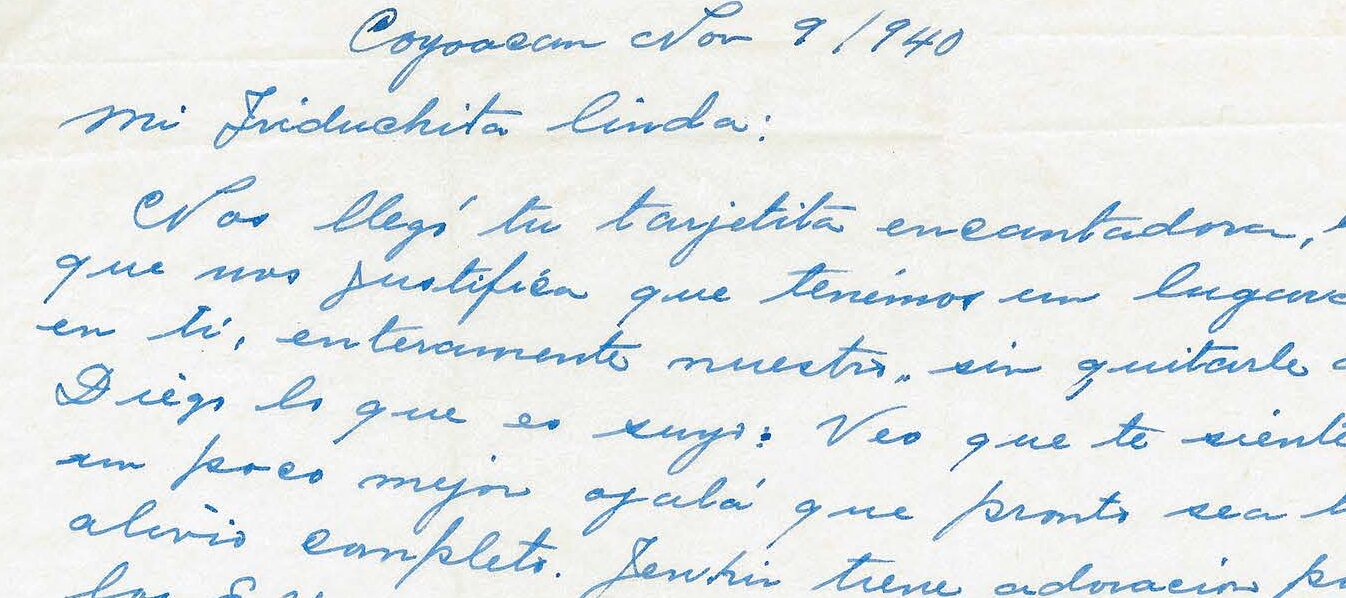 Coyoacan Nov 9/940
Mi Friduchita linda:
Nos llegó tu tarjetita encantadora,
que nos justifica que tenémos un lugar
en ti, enteramente nuestro, sin quitarle
Diégo lo que es suyo: Veo que te siénte
un poco mejor ojalá que pronto sea
alivio completo. tiene adoracion
los